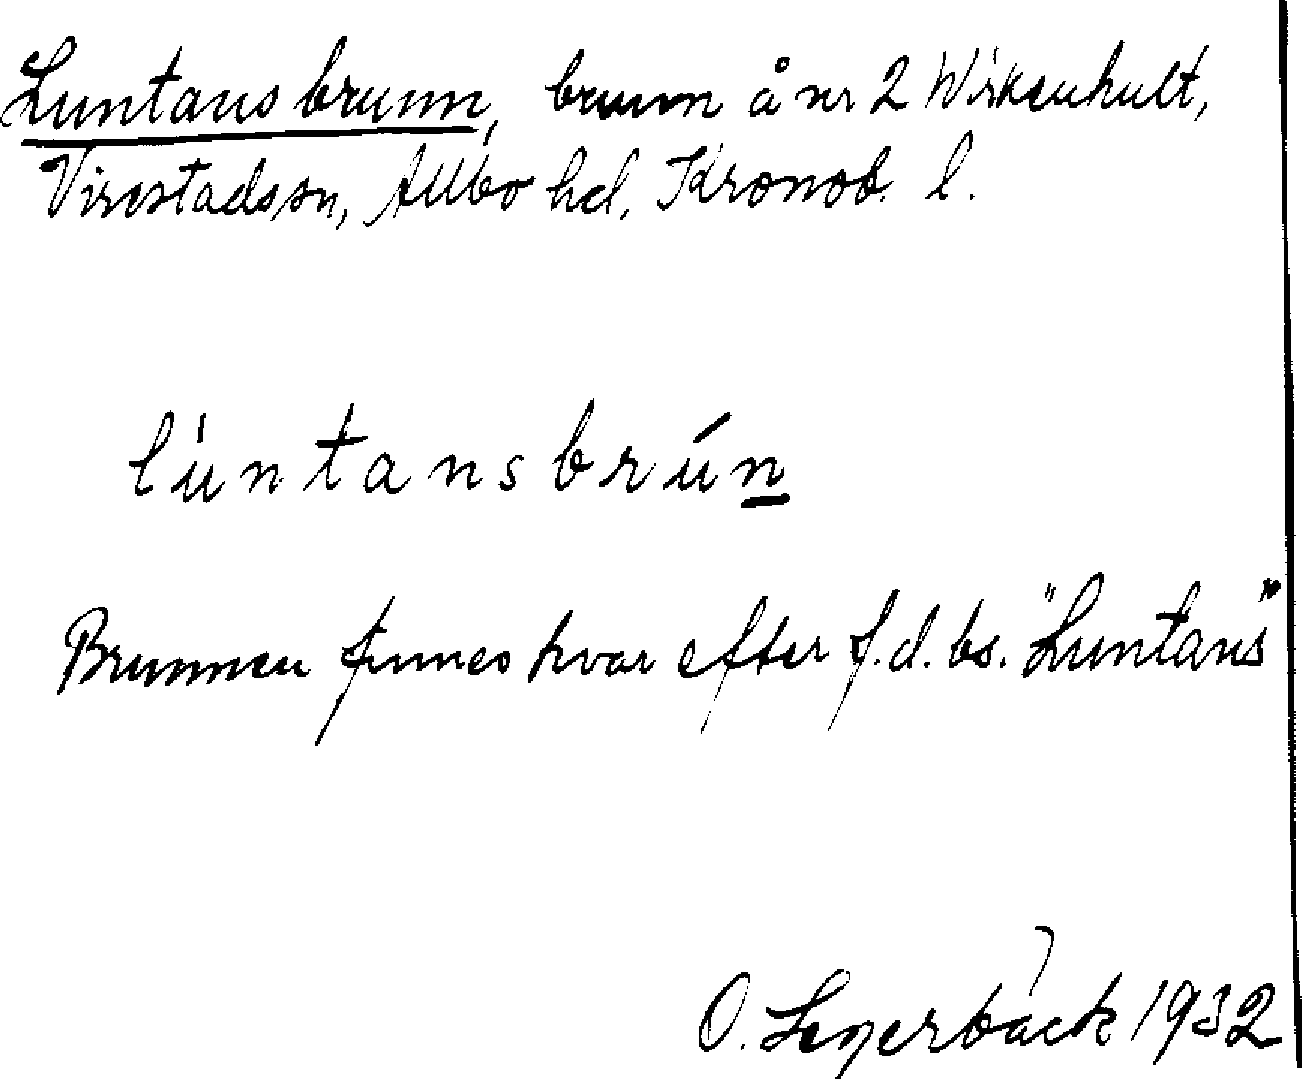 Luntans brunn, brunn å nr 2 Wirkenhult,
Virestads sn, Allbo hd, Kronob. l.
lùntansbrún
Brunnen finnes kvar efter f.d. bs. "Luntans"
O. Legerbäck 1932